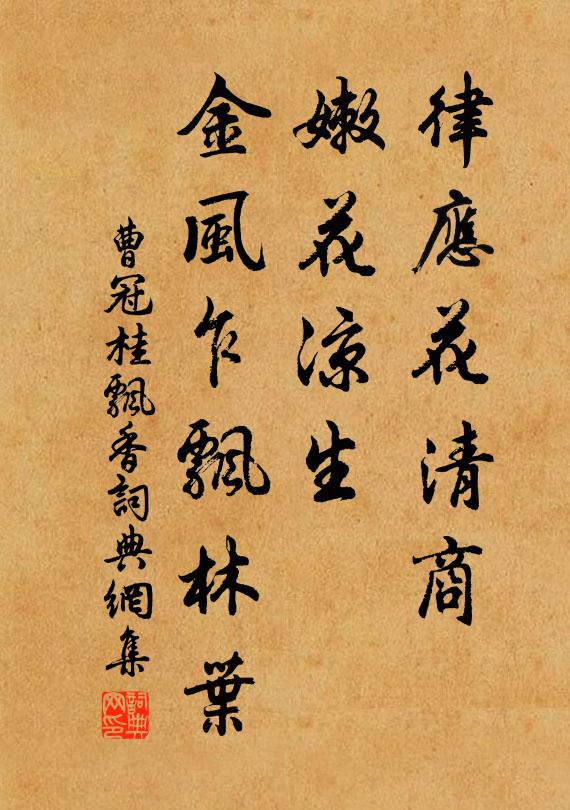 律應花清商
嫩花涼生
金風乍飄林葉
曹冠桂飄香詞典網集
詞典網印